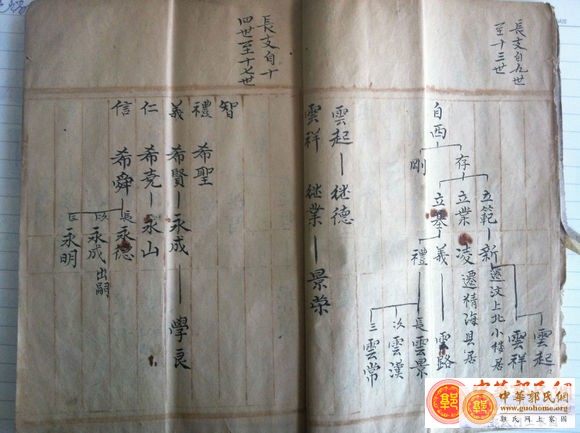 長支自九世
至十三世
自西
存
剛
立範一新
遷汶上北小樓居
雲起
雲祥
立業
凌
遷精海县居
立
義
雲路
禮
長雲景
次雲漢
三雲常
雲起一继德
雲祥 继業一景荣
長支自十
四世至十七世
智
禮 希聖
義 希賢一永成一學良
仁 希 一永山
信 希舜
長永德
永成出嗣
永明
中華郭氏網
www.guohome.org
郭氏网上家園